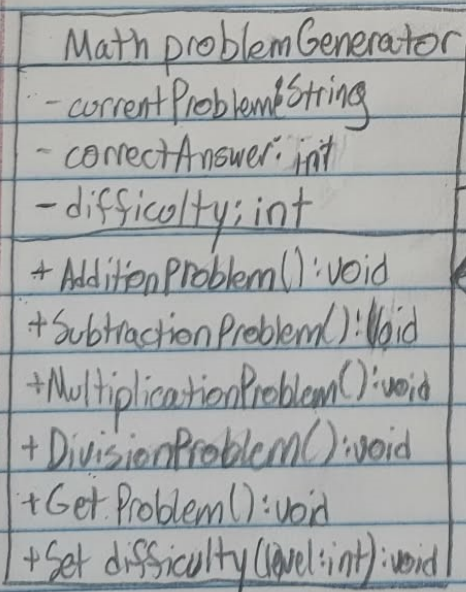 Math problemGenerator
- currentProblem:String
- correctAnswer: int
- difficolty: int
+ AdditionProblem(): void
+SubtractionProblem(): Void
+MultiplicationProblem(): void
+ DivisionProblem(): void
+Get Problem(): void
+Set difficulty(level:int): void